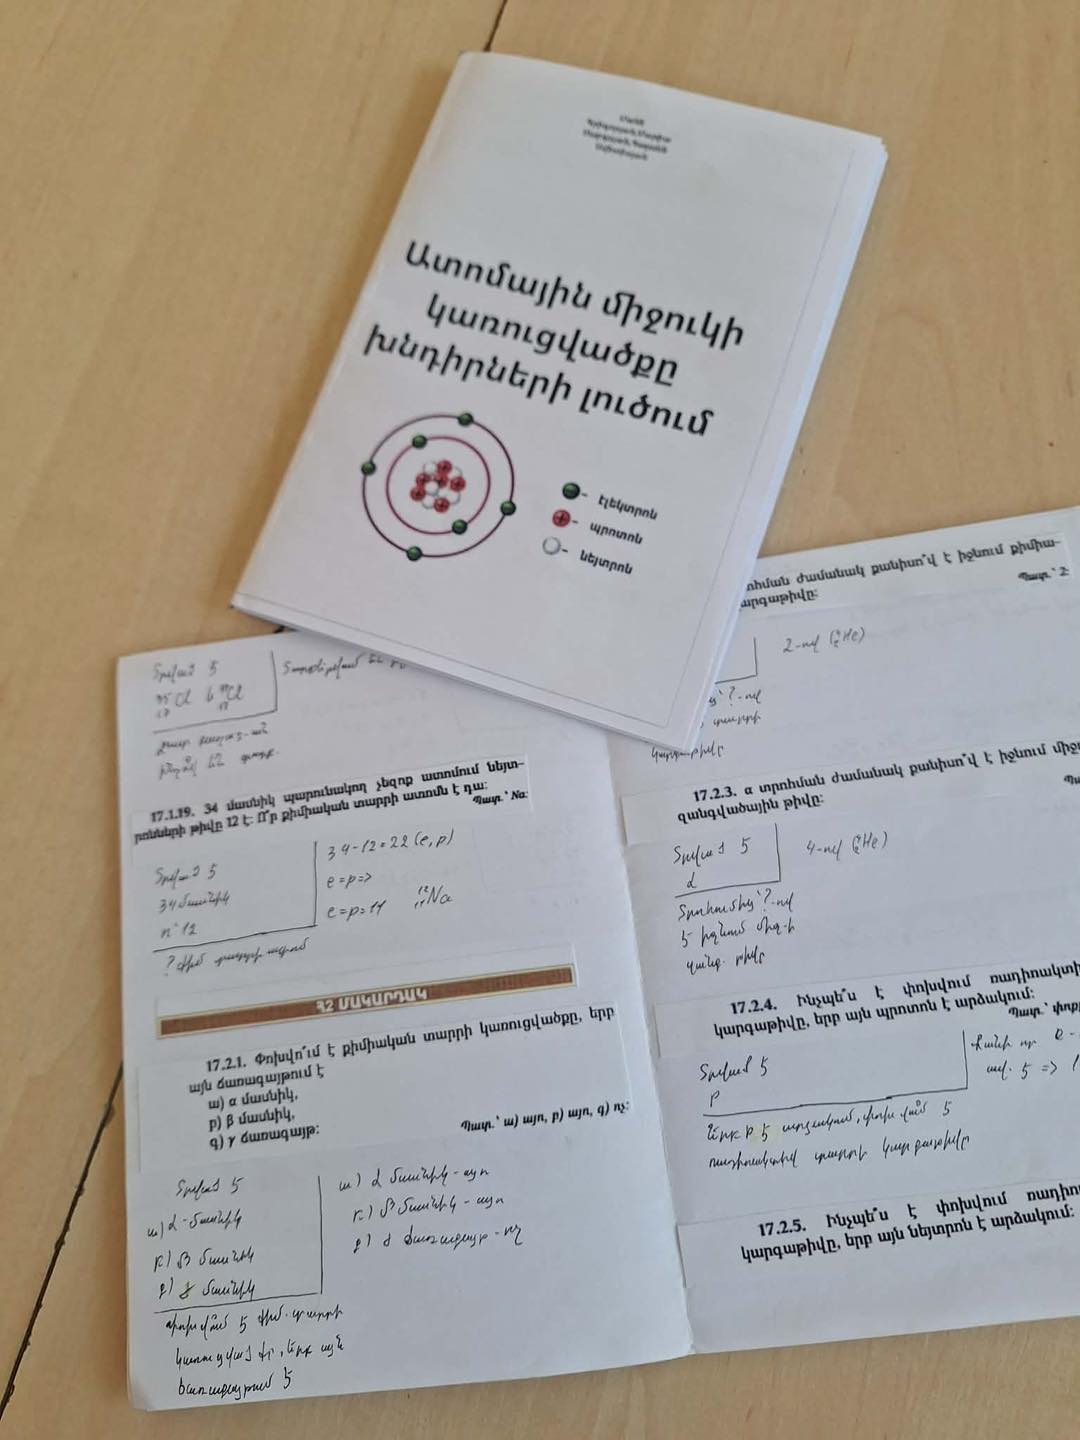 Ատոմային միջուկի
կառուցվածքը
խնդիրների լուծում
- էլեկտրոն
- պրոտոն
- նեյտրոն
Տրված է
35 Cl և 37 Cl
17 17
17.1.19. 34 մասնիկ պարունակող չեզոք ատոմում նեյտ-
րոնների թիվը 12 է: Ո՞ր քիմիական տարրի ատոմն է դա:
Պատ.՝ Na:
Տրված է
34 մասնիկ
n՝ 12
? քիմ տարրի ատոմ
34-12=22 (e, p)
e=p=>
e=p=11 Na
Հ2 ՄԱԿԱՐԴԱԿ
17.2.1. Փոխվո՞ւմ է քիմիական տարրի կառուցվածքը, երբ
այն ճառագայթում է
ա) α մասնիկ,
բ) β մասնիկ,
գ) γ ճառագայթ:
Պատ.՝ ա) այո, բ) այո, գ) ոչ:
Տրված է
ա) α-մասնիկ
բ) β մասնիկ
գ) γ մասնիկ
փոխվո՞ւմ է քիմ. տարրի
կառուցվածքը, երբ այն
ճառագայթում է
ա) α մասնիկ - այո
բ) β մասնիկ - այո
գ) γ ճառագայթ - ոչ
ոհման ժամանակ քանիսո՞վ է իջնում քիմիա-
արգաթիվը:
Պատ.՝ 2:
2-ով (He)
՝?-ով
տարրի
կարգաթիվը
17.2.3. α տրոհման ժամանակ քանիսո՞վ է իջնում միջ
զանգվածային թիվը:
Տրված է
α
Տրոհումից՝ ?-ով
է իջնում միջ-ի
զանգ. թիվը
4-ով (He)
17.2.4. Ինչպե՞ս է փոխվում ռադիոակտի
կարգաթիվը, երբ այն պրոտոն է արձակում:
Պատ.՝ փոք
Տրված է
p
Երբ p է արձակում, փոխվո՞ւմ է
ռադիոակտիվ տարրի կարգաթիվը
Քանի որ e -
=>
17.2.5. Ինչպե՞ս է փոխվում ռադիո
կարգաթիվը, երբ այն նեյտրոն է արձակում: